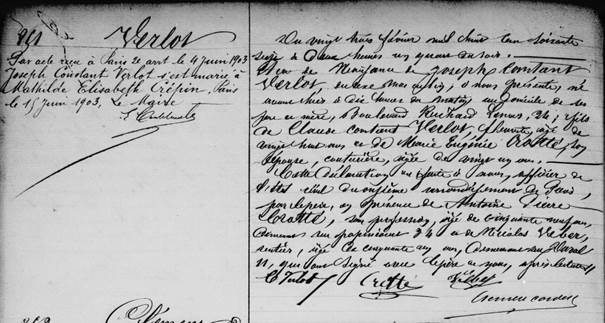 Verlot
Par acte reçu à Paris 20e art. le 4 Juin 1903
Joseph Constant Verlot s'est marié à
Mathilde Elisabeth Crépin, Paris
le 15 Juin 1903, Le Maire
Du vingt trois février mil huit cent soixante
seize à deux heures un quart du soir.
Acte de Naissance de Joseph Constant
Verlot, du sexe masculin, à nous présenté, né
avant hier à dix heures du matin, au domicile de ses
père et mère, Boulevard Richard Lenoir, 24; fils
de Claude Constant Verlot, âgé de
vingt huit ans et de Marie Eugénie Crotte, son
épouse, couturière, âgée de vingt un ans.
Cette déclaration a été faite à nous, officier de
l'état civil du onzième arrondissement de Paris,
par le père, en présence de Antoine Pierre
Crotte, sans profession, âgé de cinquante neuf ans,
demeurant rue Popincourt 24 et de Nicolas Weber,
rentier, âgé de cinquante un ans, demeurant
11, qui ont signé avec le père et nous, après lecture
C Verlot Crotte
Clémens